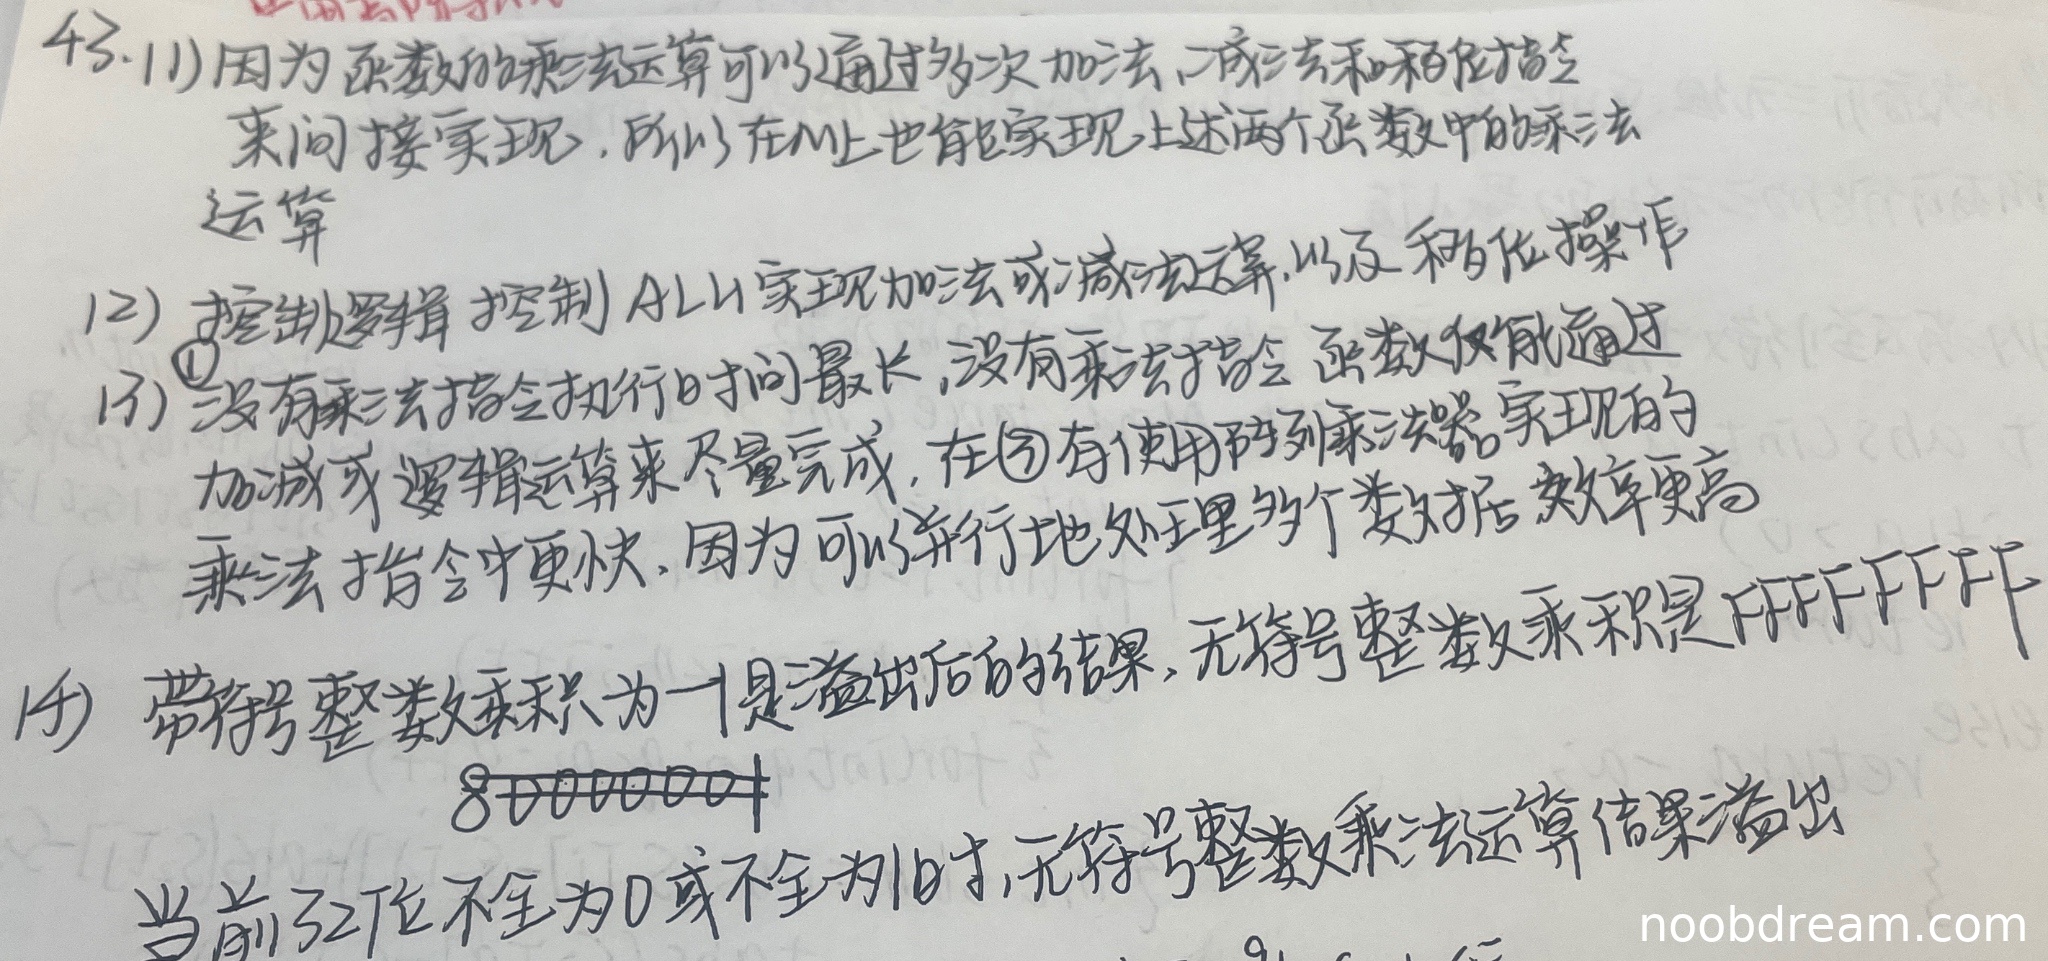 43.(1)因为函数的乘法运算可以通过多次加法、减法和移位指令
来间接实现,所以在M上也能实现上述两个函数中的乘法
运算
(2) 控制逻辑控制ALU实现加法或减法运算,以及移位操作
(3) ①没有乘法指令执行时间最长,没有乘法指令函数仅能通过
加减或逻辑运算来尽量完成,在③有使用阵列乘法器实现的
乘法指令中更快,因为可以并行地处理多个数据 效率更高
(4) 带符号整数乘积为-1是溢出后的结果,无符号整数乘积是FFFFFFFF
当前32位不全为0或不全为1时,无符号整数乘法运算结果溢出
noobdream.com